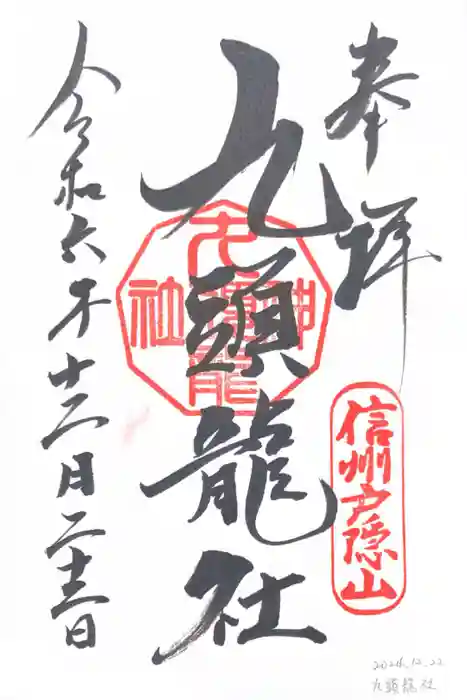 奉拝
信州戸隠山
九頭龍社
令和六年十二月二十二日
2024.12.22
九頭龍社